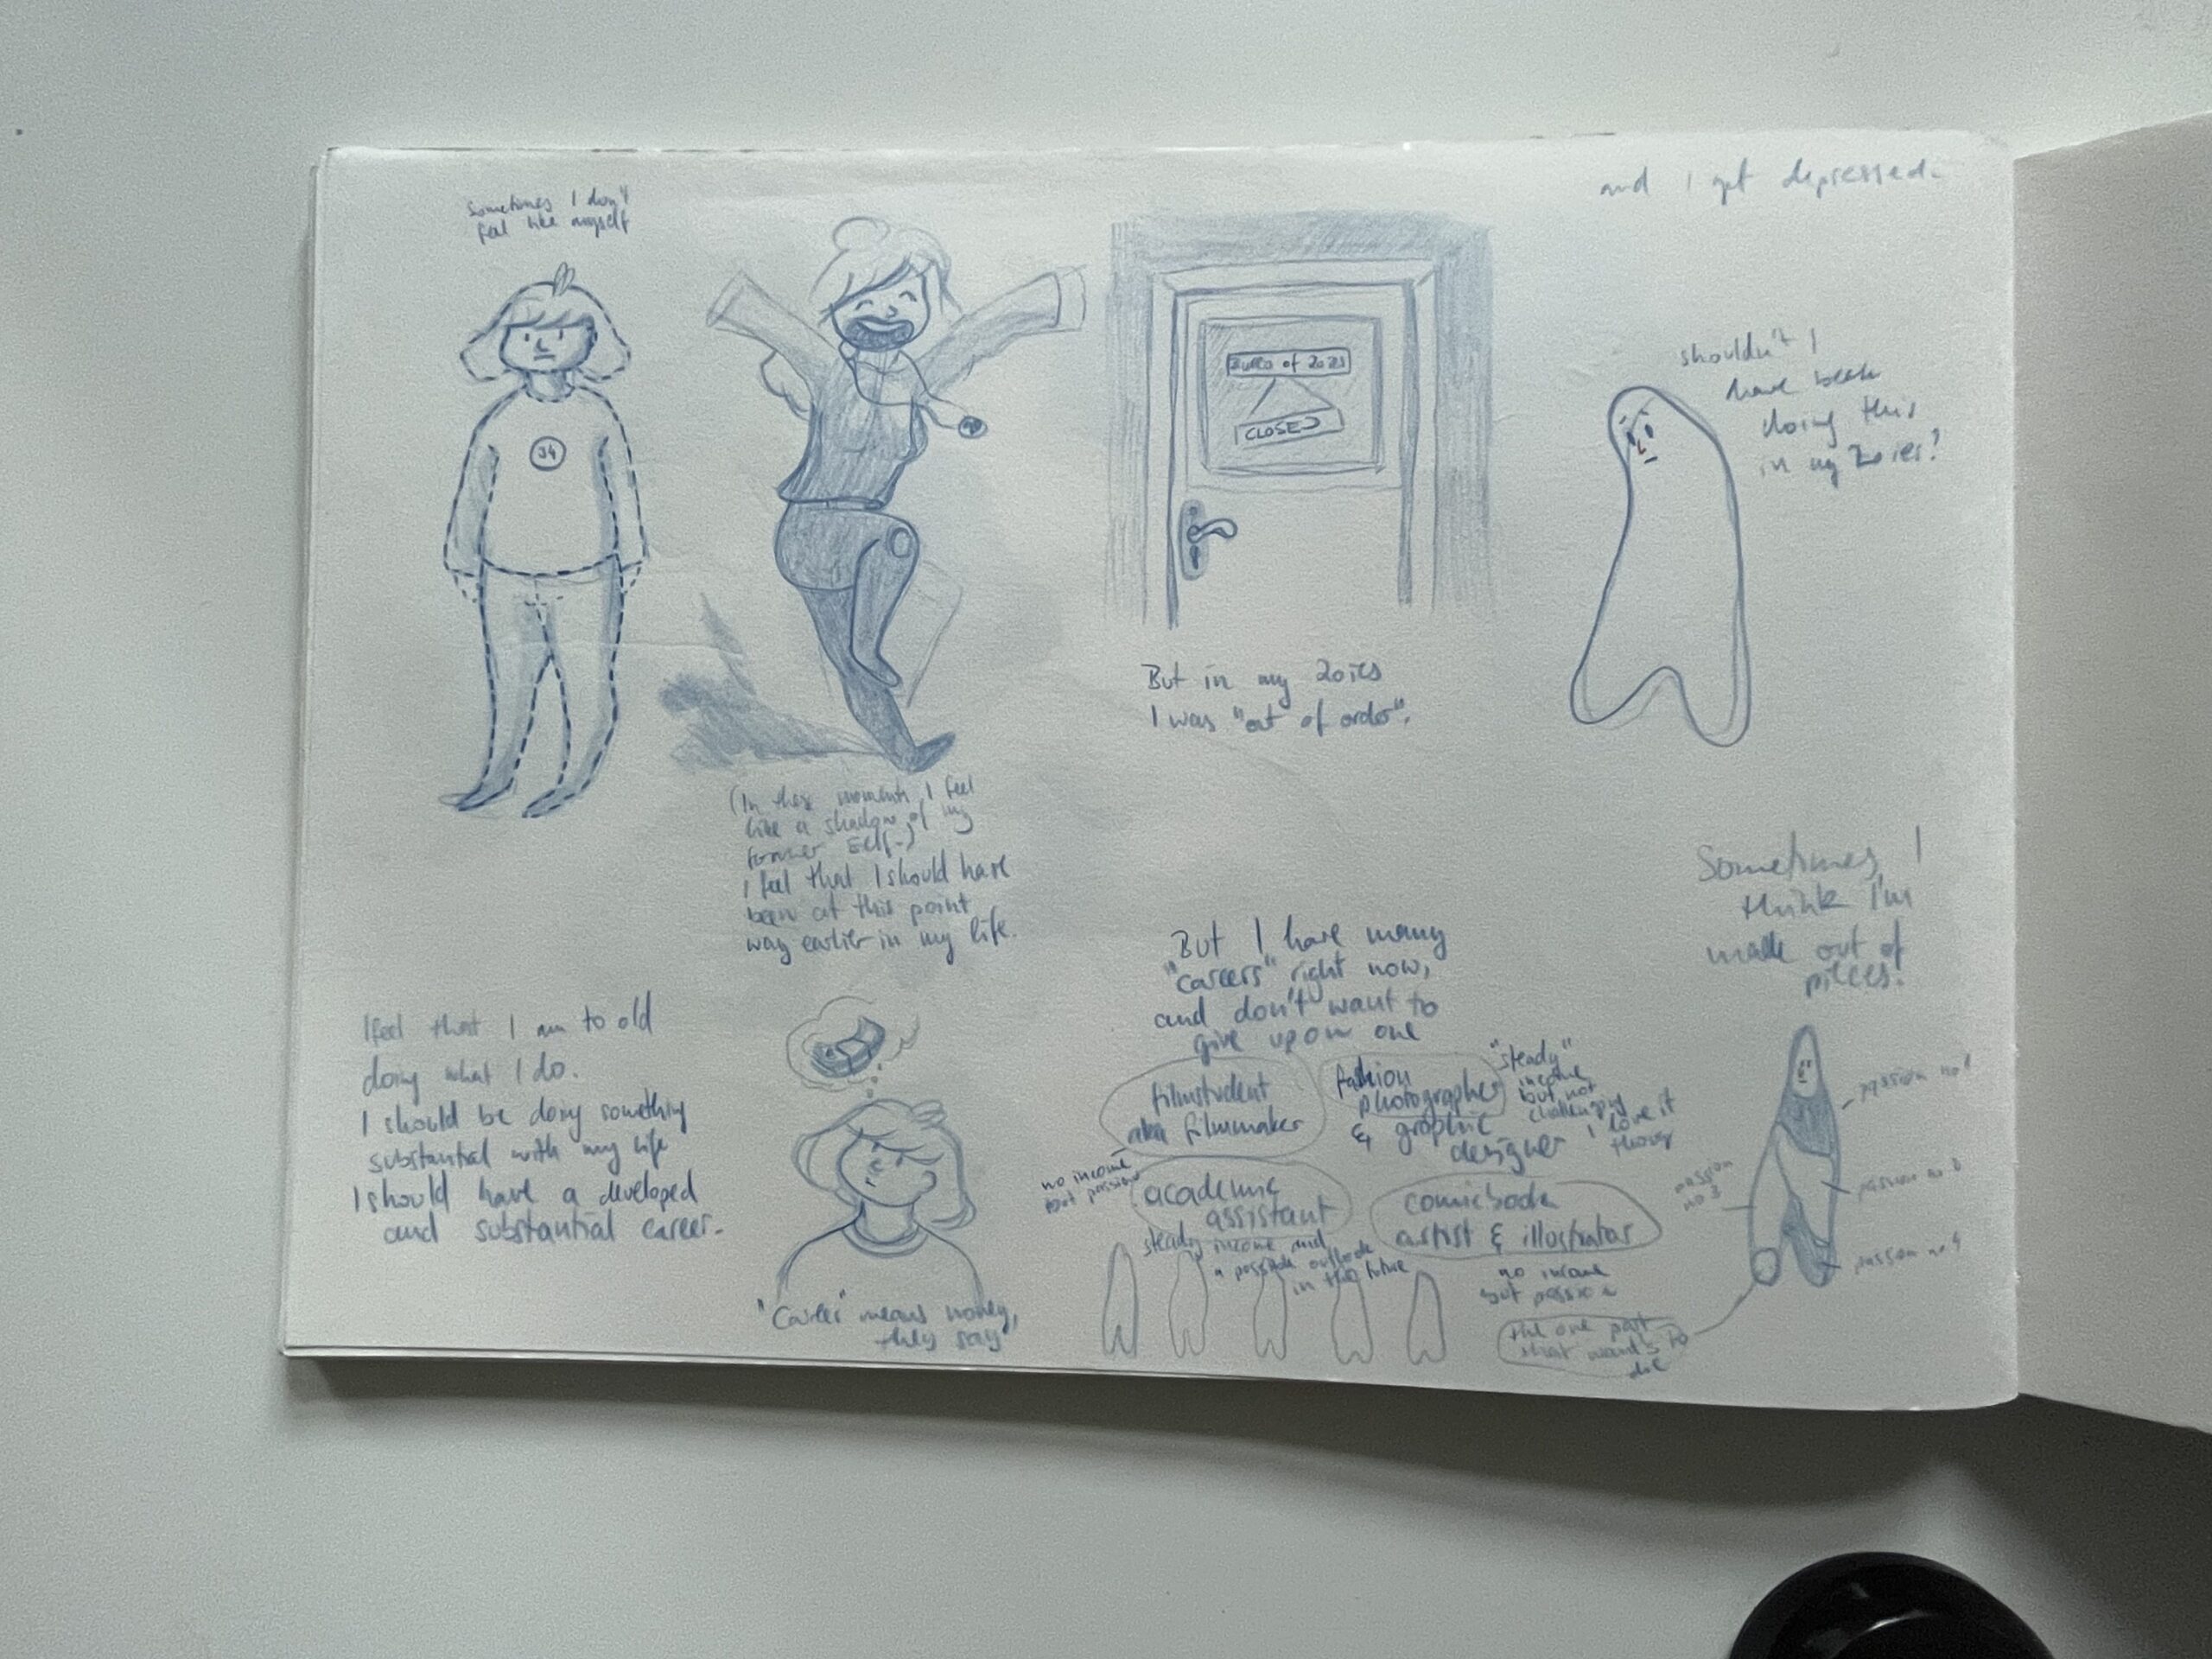 Sometimes I don't
feel like myself
34
(In this moments I feel
like a shadow of my
former self.)
I feel that I should have
been at this point
way earlier in my life.
of 20ies
CLOSED
But in my 20ies
I was "out of order".
and I get depressed.
shouldn't I
have been
doing this
in my 20ies?
I feel that I am to old
doing what I do.
I should be doing something
substantial with my life
I should have a developed
and substantial career.
"Career" means money,
they say
But I have many
"careers" right now,
and don't want to
give up on one
filmstudent
aka filmmaker
no income
but passion
fashion
photographer
& graphic
designer
"steady"
income
but not
challenging
I love it
though
academic
assistant
steady income and
a possible outlook
in the future
comicbook
artist & illustrator
no income
but passion
Sometimes, I
think I'm
made out of
pieces.
passion no 1
passion no 2
passion no 3
passion no 4
the one part
that wants to
die